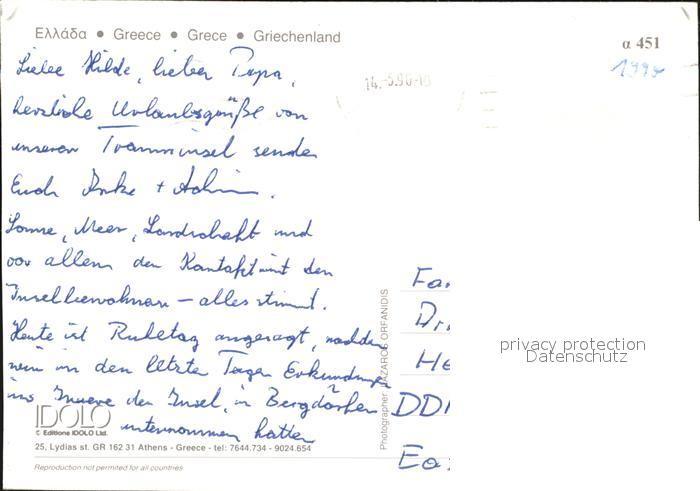 Ελλάδα • Greece • Grece • Griechenland
α 451
1990
14.-5.90-18
Liebe Hilde, lieber Papa,
herzliche Urlaubsgrüße von
unserer Trauminsel senden
Euch Anke + Achim.
Sonne, Meer, Landschaft und
vor allem der Kontakt mit den
Inselbewohnern – alles stimmt.
Heute ist Ruhetag angesagt, nachdem
wir in den letzten Tagen Erkundungen
ins Innere der Insel, in Bergdörfer
unternommen hatten
Fa
Dr.
He
DD
Photographer: LAZAROS ORFANIDIS
privacy protection
Datenschutz
IDOLO
© Editions IDOLO Ltd.
25, Lydias st. GR 162 31 Athens - Greece - tel: 7644.734 - 9024.654
Reproduction not permited for all countries